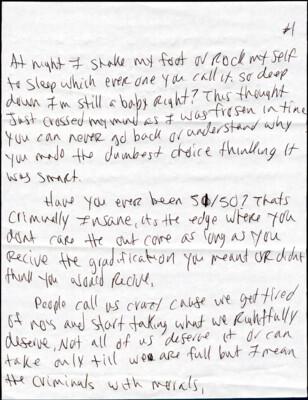 #1
At night I shake my foot or Rock my self
to sleep which ever one you call it. so deep
down I'm still a baby Right? This thought
Just crossed my mind as I was frosen in time
you can never go back or understand why
you made the dumbest choice thinking it
was smart.
Have you ever been 50/50? Thats
Criminally Insane, its the edge where you
dont care the out come as long as you
Recive the gradification you meant or didnt
think you would Recive.
People call us crazy cause we get tired
of no's and start taking what we Rightfully
deserve. Not all of us deserve it or can
take only till we are full but I mean
the criminals with morals,